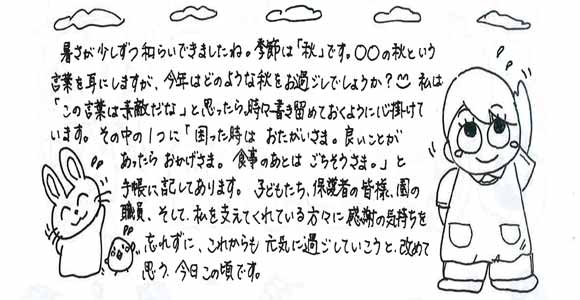 暑さが少しずつ和らいできましたね。季節は「秋」です。○○の秋という
言葉を耳にしますが、今年はどのような秋をお過ごしでしょうか？ 私は
「この言葉は素敵だな」と思ったら、時々書き留めておくように心掛けて
います。その中の1つに「困った時は おたがいさま。良いことが
あったら おかげさま。食事のあとは ごちそうさま。」と
手帳に記してあります。子どもたち、保護者の皆様、園の
職員、そして、私を支えてくれている方々に感謝の気持ちを
忘れずに、これからも 元気に過ごしていこうと、改めて
思う、今日この頃です。